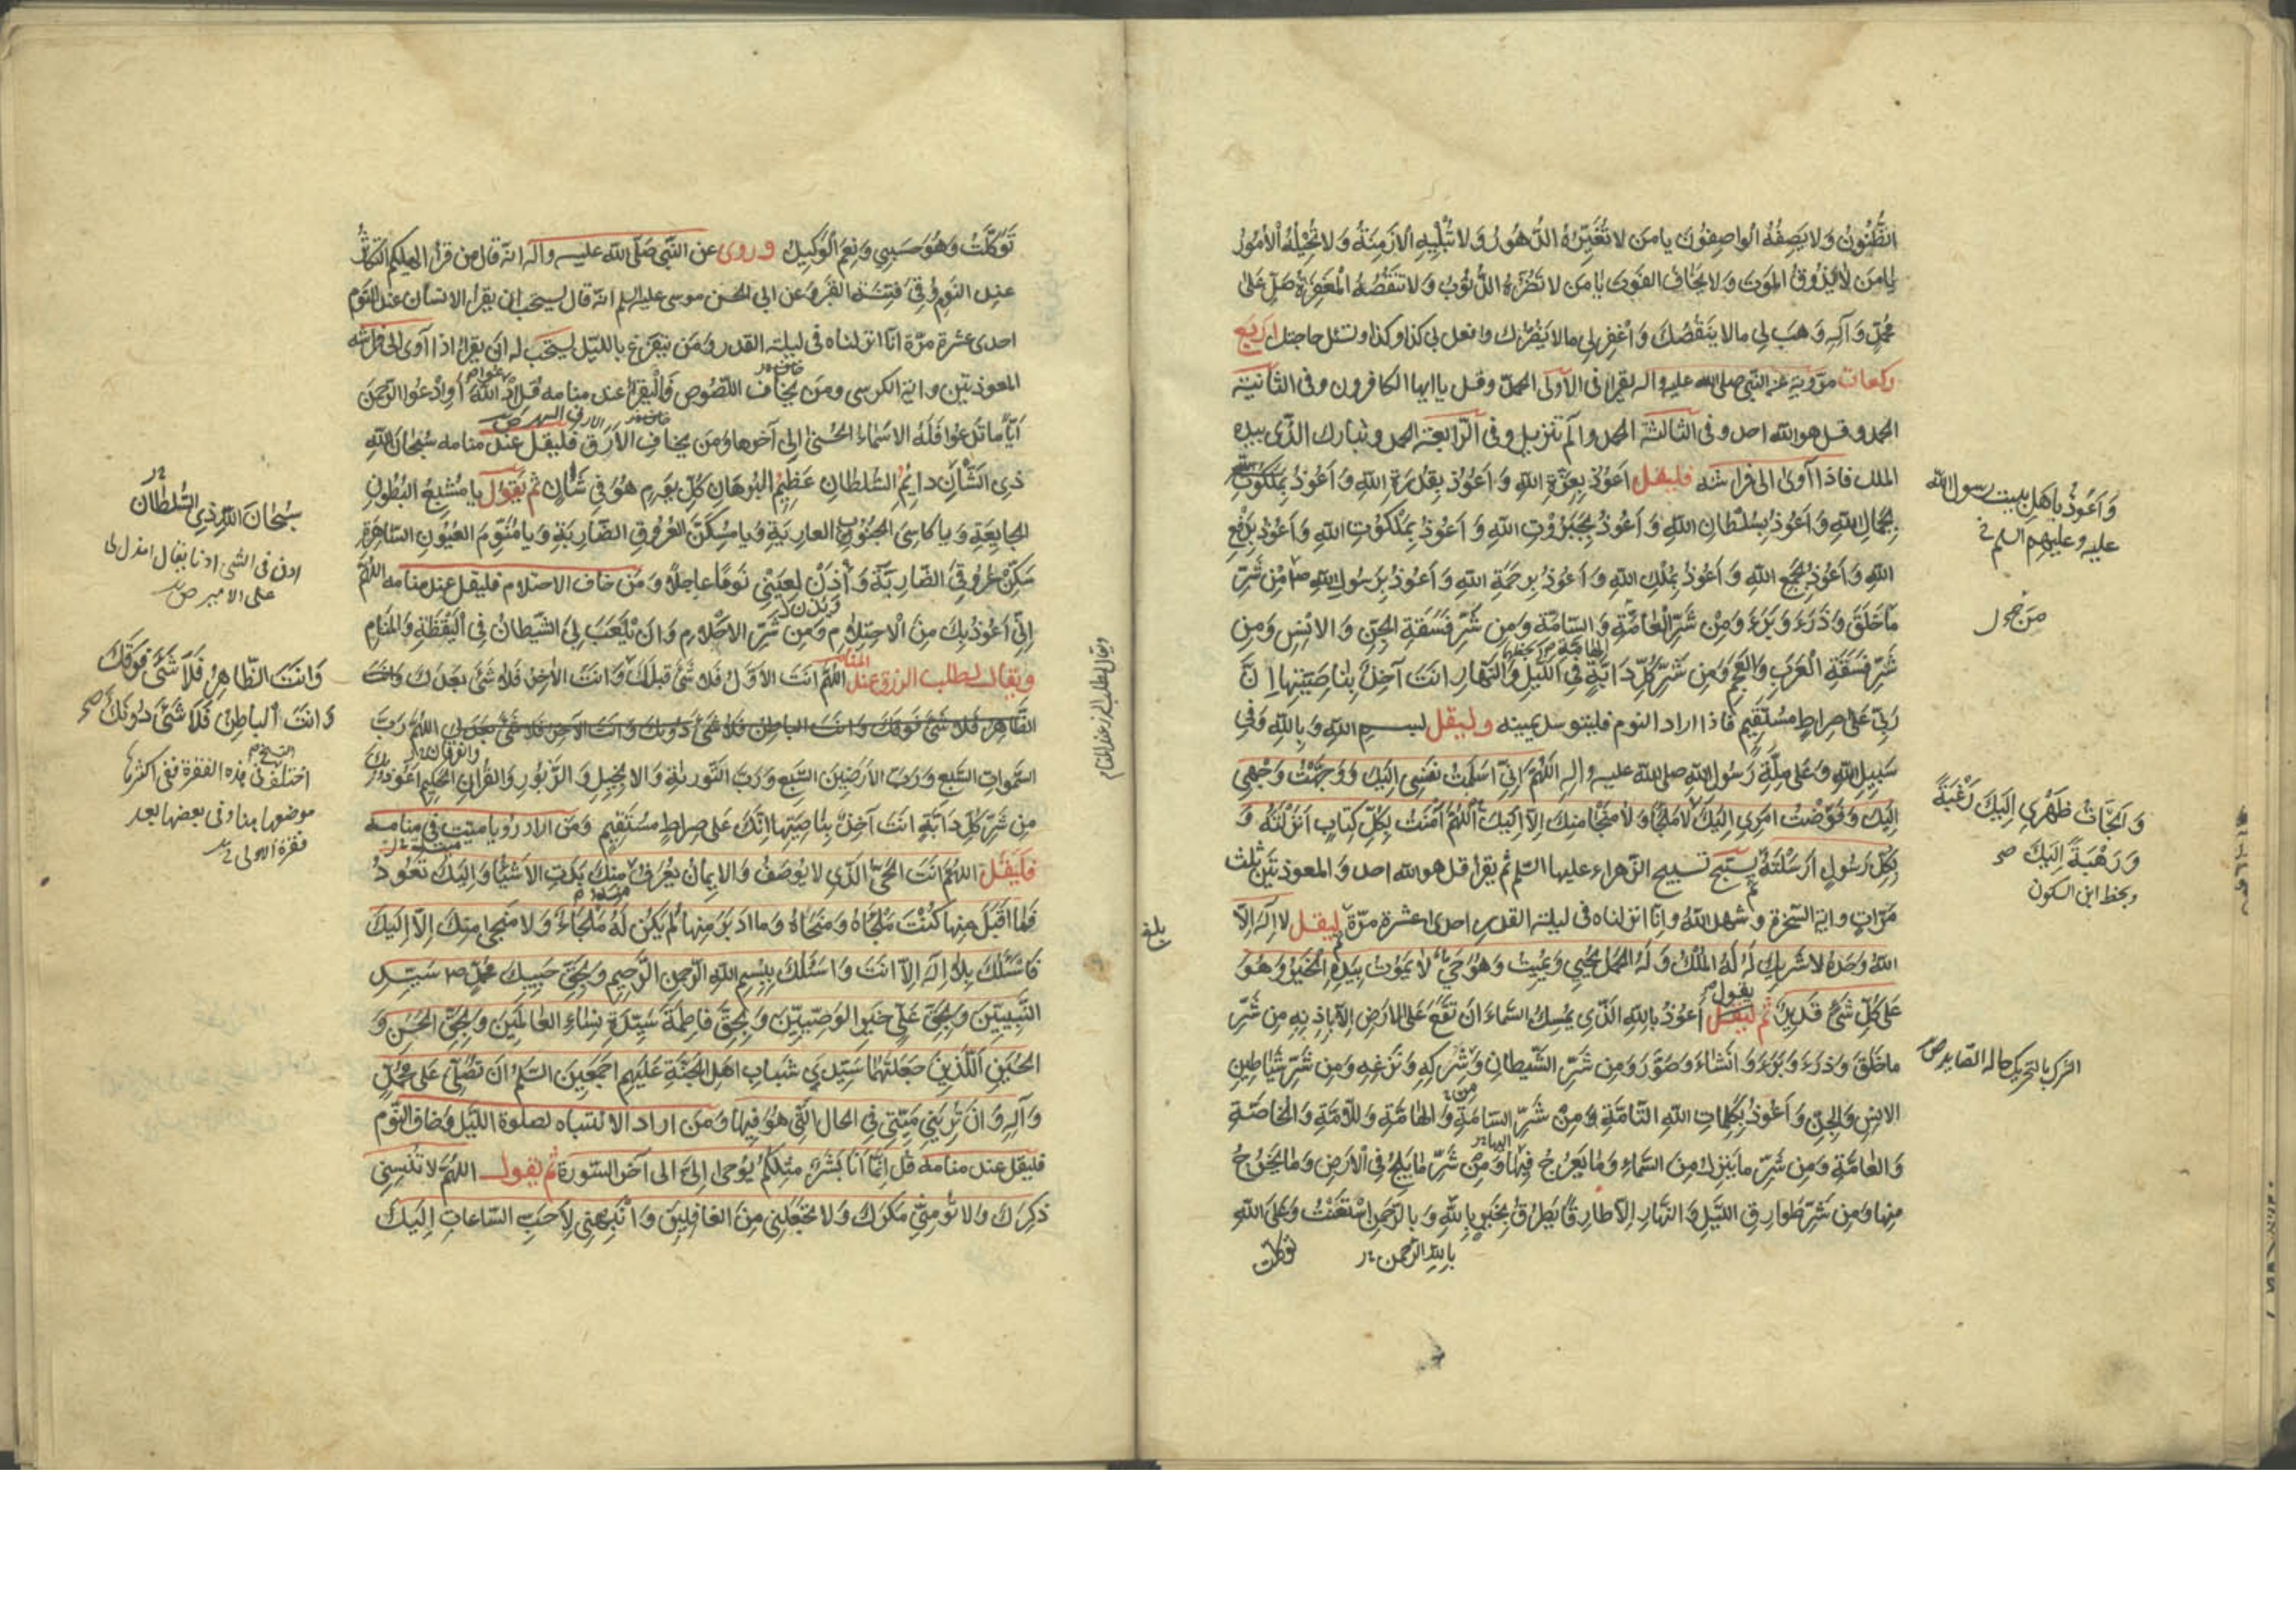 الظُّنُونُ وَلا يَصِفُهُ الواصِفُونَ يا مَن لا تُغَيِّرُهُ الدُّهُورُ وَلا تُبْلِيهِ الأزمِنَةُ وَلا تُحِيلُهُ الأمُورُ
يا مَن لا يَذُوقُ المَوتَ وَلا يَخافُ الفَوتَ يا مَن لا تَضُرُّهُ الذُّنُوبُ وَلا تَنقُصُهُ المَغفِرَةُ صَلِّ عَلى
مُحَمَّدٍ وَآلِهِ وَهَب لِي مالا يَنقُصُكَ وَاغْفِر لِي مالا يَضُرُّكَ وافعل بي كذا وكذا وتسئل حاجتك اربَع
ركعات مرّوية عن النبي صلى الله عليه واله يقرأ في الأولى الحمد وقل يا ايها الكافرون وفي الثانية
الحمد وقل هو الله احد وفي الثالثة الحمد والم تنزيل وفي الرّابعة الحمد وتبارك الذّى بيده
الملك فاذا آوى الى فراشه فليقل اَعُوذُ بِعِزَّةِ اللهِ وَ اَعُوذُ بِقُدرَةِ اللهِ وَاَعُوذُ بِمَلَكُوتِ
بِجَمالِ اللهِ وَاَعُوذُ بِسُلْطانِ اللهِ وَ اَعُوذُ بِجَبَرُوتِ اللهِ وَ اَعُوذُ بِمَلَكُوتِ اللهِ وَاَعُوذُ بِدَفْعِ
اللهِ وَ اَعُوذُ بِجَمعِ اللهِ وَ اَعُوذُ بِمُلكِ اللهِ وَ اَعُوذُ بِرَحمَةِ اللهِ وَ اَعُوذُ بِرَسُولِ اللهِ ص مِنْ شَرِّ
ما خَلَقَ وَذَرَءَ وَبَرَءَ وَمِنْ شَرِّ الْعامَّةِ وَ السّامَّةِ وَمِن شَرِّ فَسَقَةِ الجِنِّ وَ الانسِ وَمِن
شَرِّ فَسَقَةِ الْعَرَبِ وَالعَجَمِ وَمِن شَرِّ كُلِّ دَابَّةٍ فِي اللَّيلِ وَالنَّهارِ انتَ آخِذٌ بِناصِيَتِها اِنَّ
رَبّي عَلى صِراطٍ مُستَقِيمٍ فاذا اراد النوم فليتوسد يمينه وليقل لبسمِ اللهِ وَ بِاللهِ وَفي
سَبِيلِ اللهِ وَ عَلى مِلَّةِ رَسُولِ اللهِ صلى الله عليه واله اَللّهُمَّ اِنّي اَسلَمتُ نَفسِي اِلَيكَ وَوَجَّهْتُ وَجْهِي
اِلَيكَ وَ فَوَّضتُ امرِي اِلَيكَ لا مَلجَأ وَلا مَنجا مِنكَ اِلّا اِلَيكَ اَللّهُمَّ آمَنتُ بِكُلِّ كِتابٍ اَنزَلتَهُ وَ
بِكُلِّ رَسُولٍ اَرسَلْتَهُ يسبّح تسبيح الزهراء عليها السّلم ثم يقرأ قل هو الله احد و المعوذتين ثلث
مرّات واية السّخرة وشهد الله وانّا انزلناه في ليلة القدر احدى عشرة مرّة ليقل لا اِلهَ اِلّا
اللهُ وَحدَهُ لا شَرِيكَ لَهُ لَهُ المُلكُ وَ لَهُ الحَمدُ يُحيي وَ يُمِيتُ وَهُوَ حَيٌّ لا يَمُوتُ بِيَدِهِ الخَيرُ وَ هُوَ
عَلى كُلِّ شَيءٍ قَدِيرٌ ثم ليقل يقول اَعُوذُ بِاللهِ الَّذِي يُمسِكُ السَّماءَ اَن تَقَعَ عَلى الارَضِ اِلّا بِاِذنِهِ مِن شَرِّ
ما خَلَقَ وَذَرَءَ وَبَرَءَ وَ اَنشَاءَ وَصَوَّرَ وَمِن شَرِّ الشَّيطانِ وَشَرَكِهِ وَ نَزغِهِ وَمِن شَرِّ شَياطِينِ
الانِسِ وَالجِنِّ وَ اَعُوذُ بِكَلِماتِ اللهِ التّامَّةِ وَمِنْ شَرِّ السّامَّةِ وَ الهامَّةِ وَ اللّامَّةِ وَ الخاصَّةِ
وَ العامَّةِ وَمِن شَرِّ ما يَنزِلُ مِنَ السَّماءِ وَما يَعرُجُ فِيها وَمِن شَرِّ ما يَلِجُ في الارَضِ وَ ما يَخرُجُ
مِنها وَمِن شَرِّ طَوارِقِ اللَّيلِ وَ النَّهارِ اِلّا طارِقًا يَطرُقُ بِخَيرٍ بِاللهِ وَ بِالرَّحمنِ اسْتَعَنْتُ وَعَلى اللهِ
بِاللهِ الرَّحمن
توكلت
وَ اَعُوذُ بِاَهلِ بيت رسول الله
عليه وعليهم السلم
وَ اَلجَأتُ ظَهْرِي اِلَيكَ رَغْبَةً
وَ رَهْبَةً اِلَيكَ صح
وبخط ابن السكون
الشرك بالتحريك حبالة الصايد ص
بلغ
تَوَكَّلتُ وَهُوَ حَسبِي وَنِعمَ الوَكِيلُ وروى عن النّبي صَلّى الله عليه واله انّه قال من قرأ الهيكم التكاثر
عند النوم وُقِيَ فِتنَة القبر وعن ابي الحسن موسى عليه السلم انّه قال يستحب ان يقرأ الانسان عند النوم
احدى عشرة مرّة انّا انزلناه في ليلة القدر ومَن يتفزع بالليل يستحب له ان يقرأ اذا آوى الى فراشه
المعوذتين واية الكرسي ومَن يخاف اللصُوص فَالْيقرأ عند منامه قُل ادْعُوا اللهَ اَوِ ادْعُوا الرَّحمَن
اَيًّا ما تَدعُوا فَلَهُ الاَسماءُ الحُسنى الى آخرها ومَن يخاف الأرَق فليقل عند منامه سُبحانَ اللهِ
ذِى الشَّأنِ دائِمِ السُّلطانِ عَظِيمِ البُرهانِ كُلَّ يَومٍ هُوَ في شَأنٍ ثم يَقُول يا مُشبِعَ البُطُونِ
الجايِعَةِ وَ يا كاسِيَ الجُنُوبِ العارِيَةِ وَيا مُسكِّنَ العُرُوقِ الضّارِبَةِ وَيا مُنَوِّمَ العُيُونِ السّاهِرَةِ
سَكِّنْ عُرُوقِيَ الضّارِبَةَ وَ أذَنْ لِعَيني نَومًا عاجِلًا وَ مَن خاف الاحتلام فليقل عند منامه اللهُمَّ
اِنّي اَعُوذُ بِكَ مِنَ الاحتِلامِ وَمِن شَرِّ الاَحلامِ وَ اَن يَلْعَبَ بِيَ الشَّيطانُ فِي اليَقَظَةِ وَالمَنامِ
ويقال لطلب الرزق عند المنام اللهُمَّ انتَ الاَوَّلُ فَلا شَيءَ قَبلَكَ وَ انتَ الآخِرُ فَلا شَيءَ بَعدَكَ وَ انتَ
الظّاهِرُ فَلا شَيءَ فَوقَكَ وَ انتَ الباطِنُ فَلا شَيءَ دُونَكَ وَ انتَ الآخِرُ فَلا شَيءَ بَعدَكَ اللهُمَّ رَبَّ
السَّمواتِ السَّبعِ وَ رَبَّ الاَرَضِينَ السَّبعِ وَ رَبَّ التَّوريةِ وَ الانجِيلِ وَ الزَّبُورِ وَ القُرآنِ الحَكِيمِ اَعُوذُ بِكَ
مِن شَرِّ كُلِّ دَابَّةٍ انتَ آخِذٌ بِناصِيَتِها اِنَّكَ عَلى صِراطٍ مُستَقِيمٍ وَمَن اراد رؤيا ميّت في منامه
فَليَقُل اللهُمَّ انتَ الحَيُّ الَّذِي لا يُوصَفُ وَ الايمانُ يُعرَفُ مِنهُ مِنكَ بَدَتِ الاَشياءُ وَ اِلَيكَ تَعُودُ
فَما اَقبَلَ مِنها كُنتَ مَلجَأهُ وَ مَنجاهُ وَ ما ادبَرَ مِنها لَم يَكُن لَهُ مَلجَاءٌ وَ لا مَنجى مِنكَ اِلّا اِلَيكَ
فَاَسئَلُكَ بِلا اِلهَ اِلّا انتَ وَ اَسئَلُكَ بِبِسمِ اللهِ الرَّحمنِ الرَّحِيمِ وَ بِحَقِّ حَبِيبِكَ مُحَمَّدٍ ص سَيِّدِ
النَّبِيِّينَ وَ بِحَقِّ عَليٍّ خَيرِ الوَصِيِّينَ وَ بِحَقِّ فاطِمَةَ سَيِّدَةِ نِساءِ العالَمِينَ وَ بِحَقِّ الحَسَنِ وَ
الحُسَينِ اللَّذَينِ جَعَلتَهُما سَيِّدَي شَبابِ اهلِ الجَنَّةِ عَلَيهِم اجمَعِينَ السَّلمُ اَن تُصَلِّيَ عَلى مُحَمَّدٍ
وَ آلِهِ وَ اَن تُرِيَني مَيِّتي فِي الحالِ الَّتي هُوَ فِيها وَ مَن اراد الانتباه لصلوة الليل وخاف النّوم
فليقل عند منامه قُل اِنَّما اَنا بَشَرٌ مِثلُكُم يُوحى اِلَيَّ الى آخر السّورة ثم يقول اللهُمَّ لا تُنسِني
ذِكرَكَ وَ لا تُؤمِنّي مَكرَكَ وَ لا تَجعَلني مِنَ الغافِلِينَ وَ انْبِهني لِاَحَبِّ السّاعاتِ اِلَيكَ
ويقال لطلب الرزق عند المنام
سُبحانَ اللهِ ذِي السُّلطان
اذن في الشئ اذنا يقال ائذن لي
على الامير ص
وَ انتَ الظّاهِرُ فَلا شَيءَ فَوقَكَ
وَ انتَ الباطِنُ فَلا شَيءَ دُونَكَ صح
اختلف النسخ في هذه الفقرة ففي اكثرها
موضعها هنا وفي بعضها بعد
فقرة الاولى